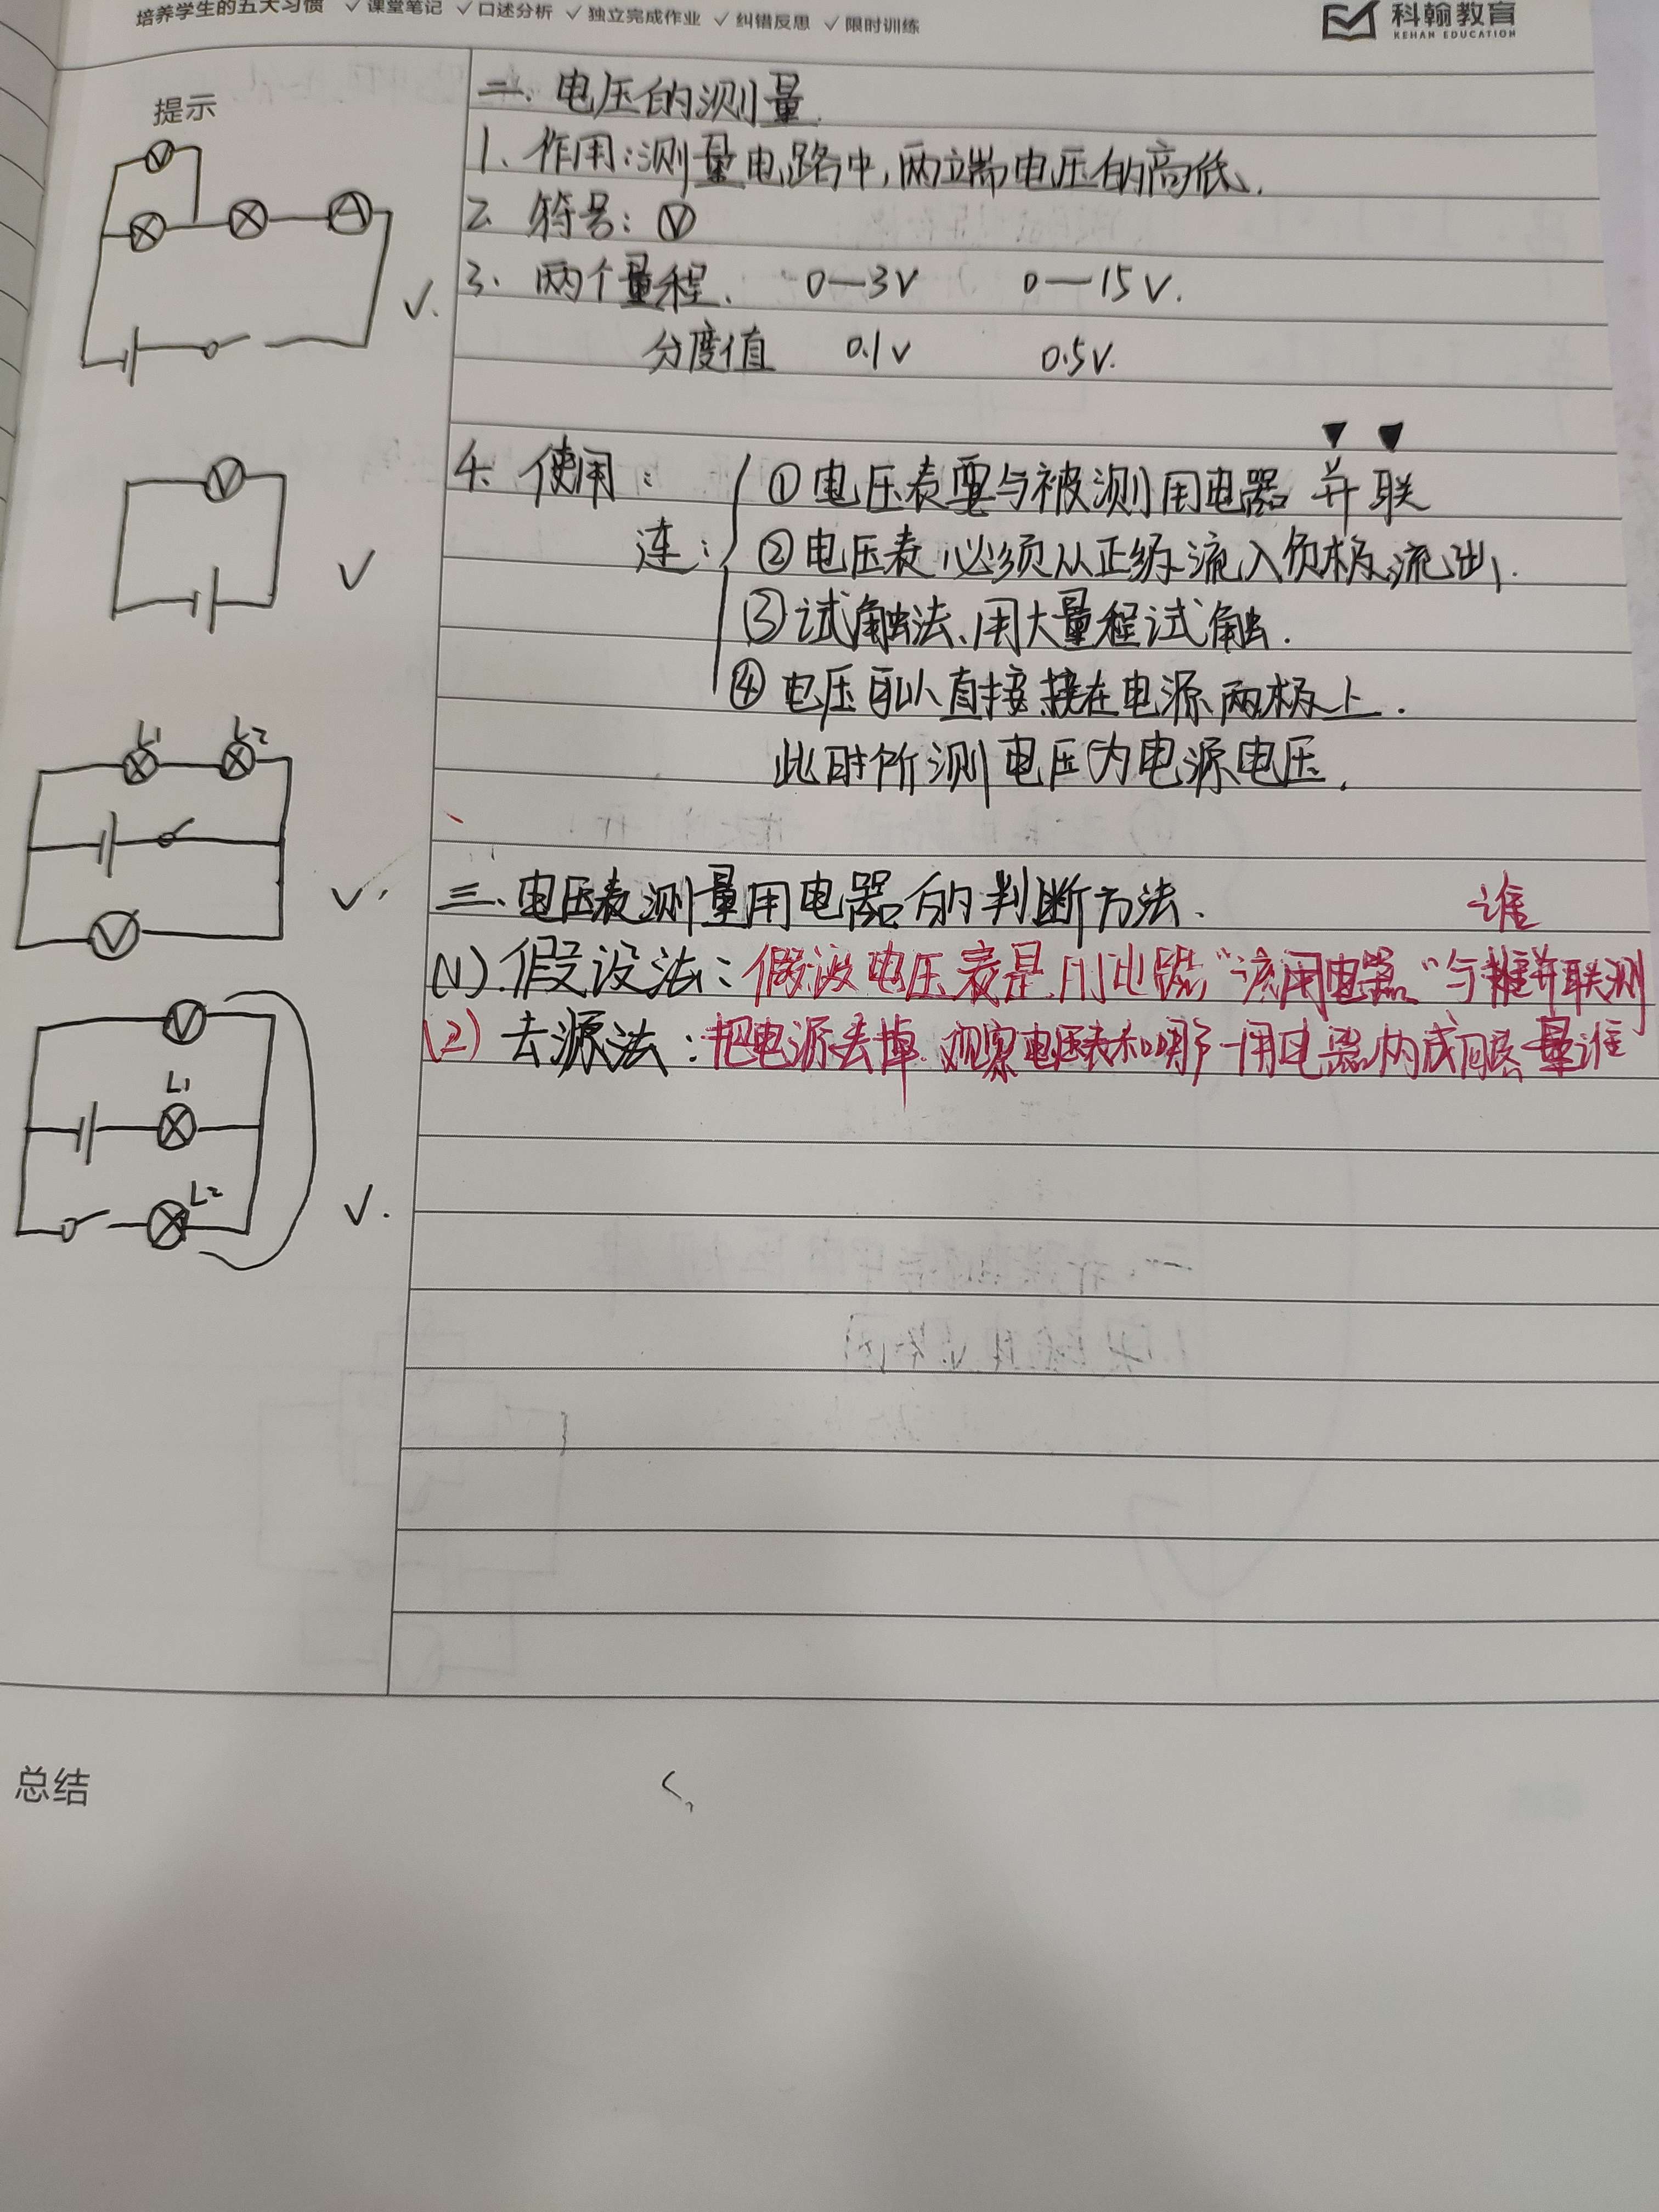 培养学生的五大习惯 ✓课堂笔记 ✓口述分析 ✓独立完成作业 ✓纠错反思 ✓限时训练
科翰教育
KEHAN EDUCATION
提示
二、电压的测量.
1、作用:测量电路中,两端电压的高低.
2、符号: Ⓥ
3、两个量程、 0—3V 0—15V.
分度值 0.1V 0.5V.
4、使用:
连:
①电压表要与被测用电器并联
②电压表必须从正 流入负极流出.
③试触法、用大量程试触.
④电压可以直接接在电源两极上.
此时所测电压为电源电压.
三、电压表测量用电器的判断方法.
谁
(1).假设法:假设电压表是 "该用电器"与 并联测
(2)去源法:把电源去掉.观察电压表和哪个用电器构成回路量谁
V
A
V
L1 L2
V
V
L1
L2
总结